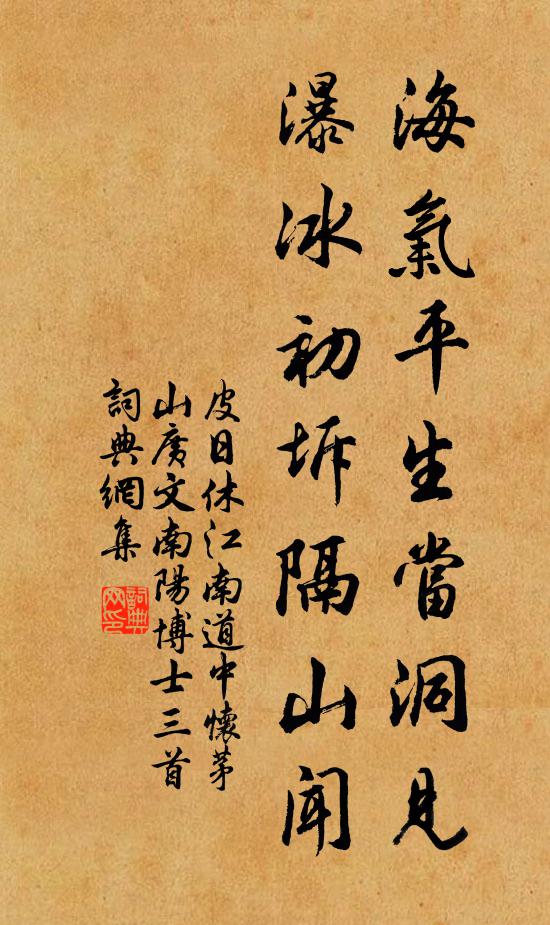 海氣平生當洞見
瀑冰初坼隔山聞
皮日休江南道中懷茅
山廣文南陽博士三首
詞典網集
詞典
网印